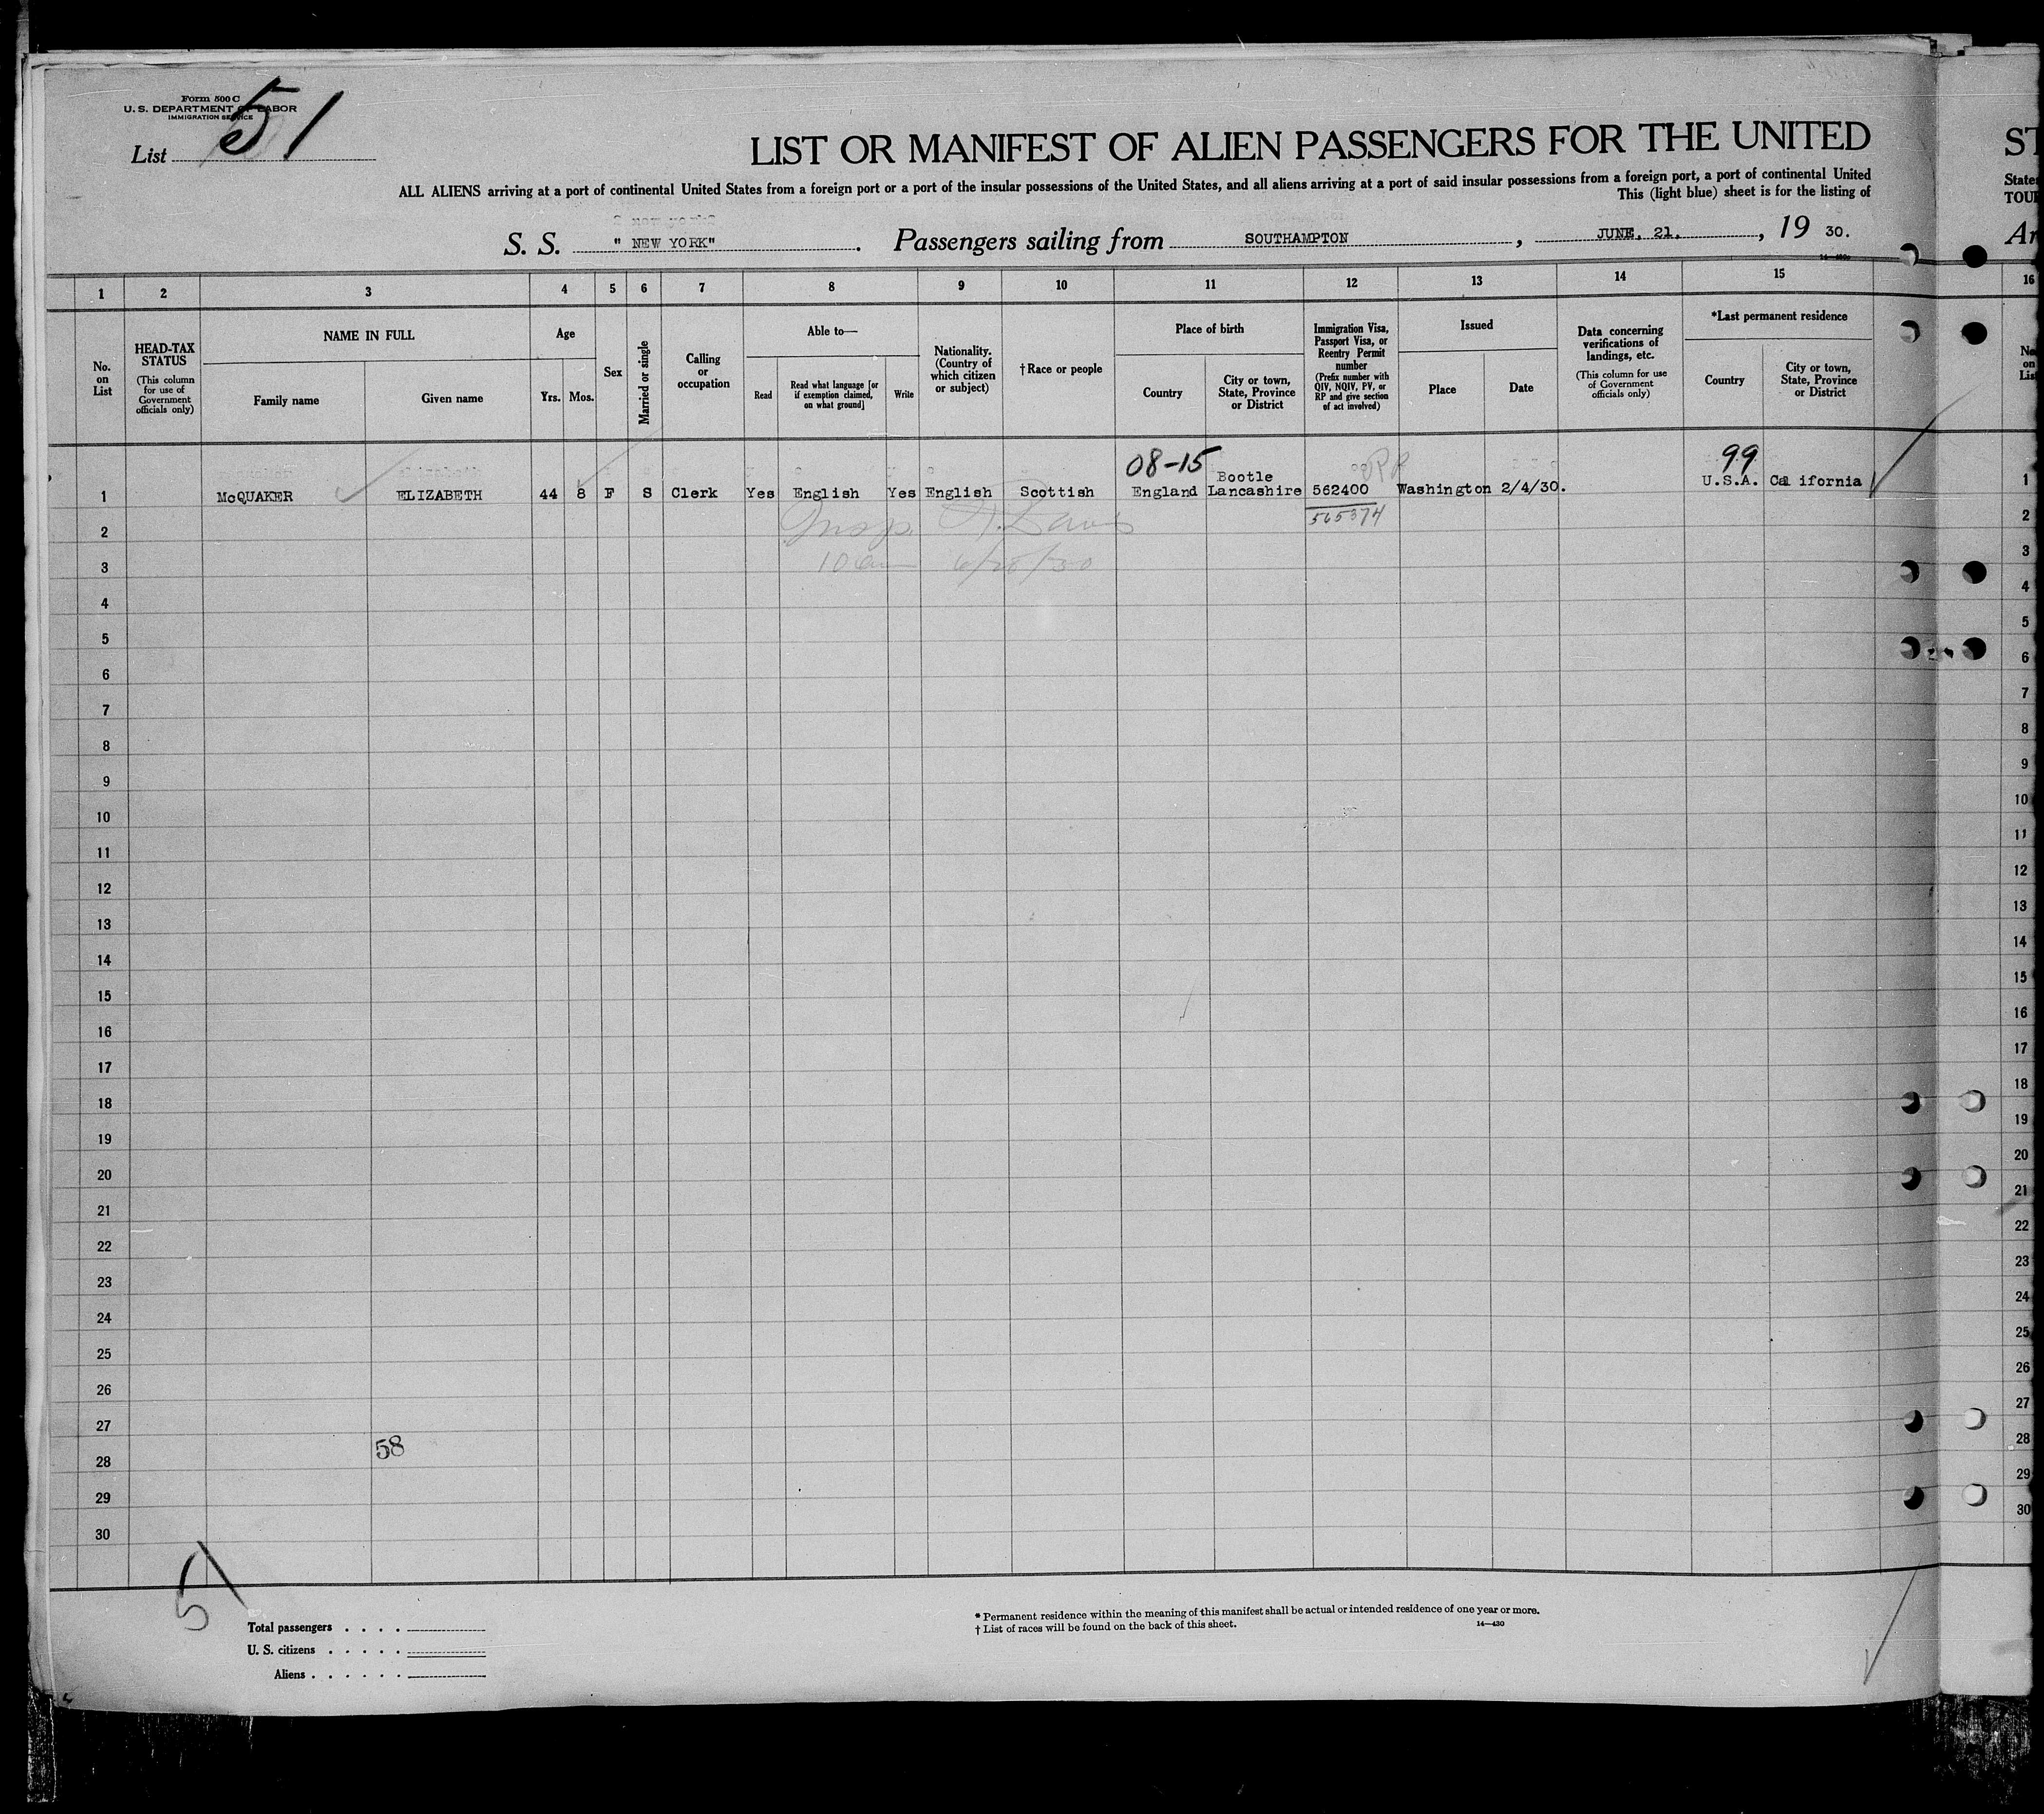 Form 500 C
U. S. DEPARTMENT OF LABOR
IMMIGRATION SERVICE
List 51
LIST OR MANIFEST OF ALIEN PASSENGERS FOR THE UNITED
ALL ALIENS arriving at a port of continental United States from a foreign port or a port of the insular possessions of the United States, and all aliens arriving at a port of said insular possessions from a foreign port, a port of continental United
This (light blue) sheet is for the listing of
S. S. " NEW YORK" . Passengers sailing from SOUTHAMPTON , JUNE, 21. , 19 30.
1 2 3 4 5 6 7 8 9 10 11 12 13 14 15
No. on List
HEAD-TAX STATUS
(This column for use of Government officials only)
NAME IN FULL
Family name
Given name
Age
Yrs. Mos.
Sex
Married or single
Calling or occupation
Able to—
Read
Read what language [or if exemption claimed, on what ground]
Write
Nationality. (Country of which citizen or subject)
†Race or people
Place of birth
Country
City or town, State, Province or District
Immigration Visa, Passport Visa, or Reentry Permit number
(Prefix number with QIV, NQIV, PV, or RP and give section of act involved)
Issued
Place
Date
Data concerning verifications of landings, etc.
(This column for use of Government officials only)
*Last permanent residence
Country
City or town, State, Province or District
08-15 RP 99
Bootle
1 McQUAKER ELIZABETH 44 8 F S Clerk Yes English Yes English Scottish England Lancashire 562400 Washington 2/4/30. U.S.A. California
565374
2
3
4
5
6
7
8
9
10
11
12
13
14
15
16
17
18
19
20
21
22
23
24
25
26
27
58
28
29
30
51
Total passengers
U. S. citizens
Aliens
* Permanent residence within the meaning of this manifest shall be actual or intended residence of one year or more.
† List of races will be found on the back of this sheet.
14—430
ST
States
TOUR
Ar
16
No. on List
1
2
3
4
5
6
7
8
9
10
11
12
13
14
15
16
17
18
19
20
21
22
23
24
25
26
27
28
29
30